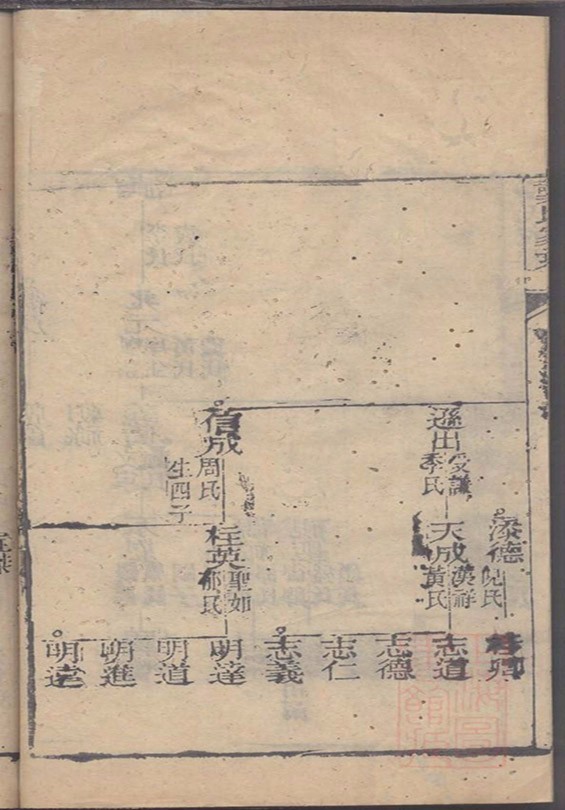 遜出
受謙
季氏
信成
周氏
生四子
添德
倪氏
天成
漢祥
黃氏
桂英
聖如
郁氏
桂卿
志道
志德
志仁
志義
明達
明道
明進
明遠